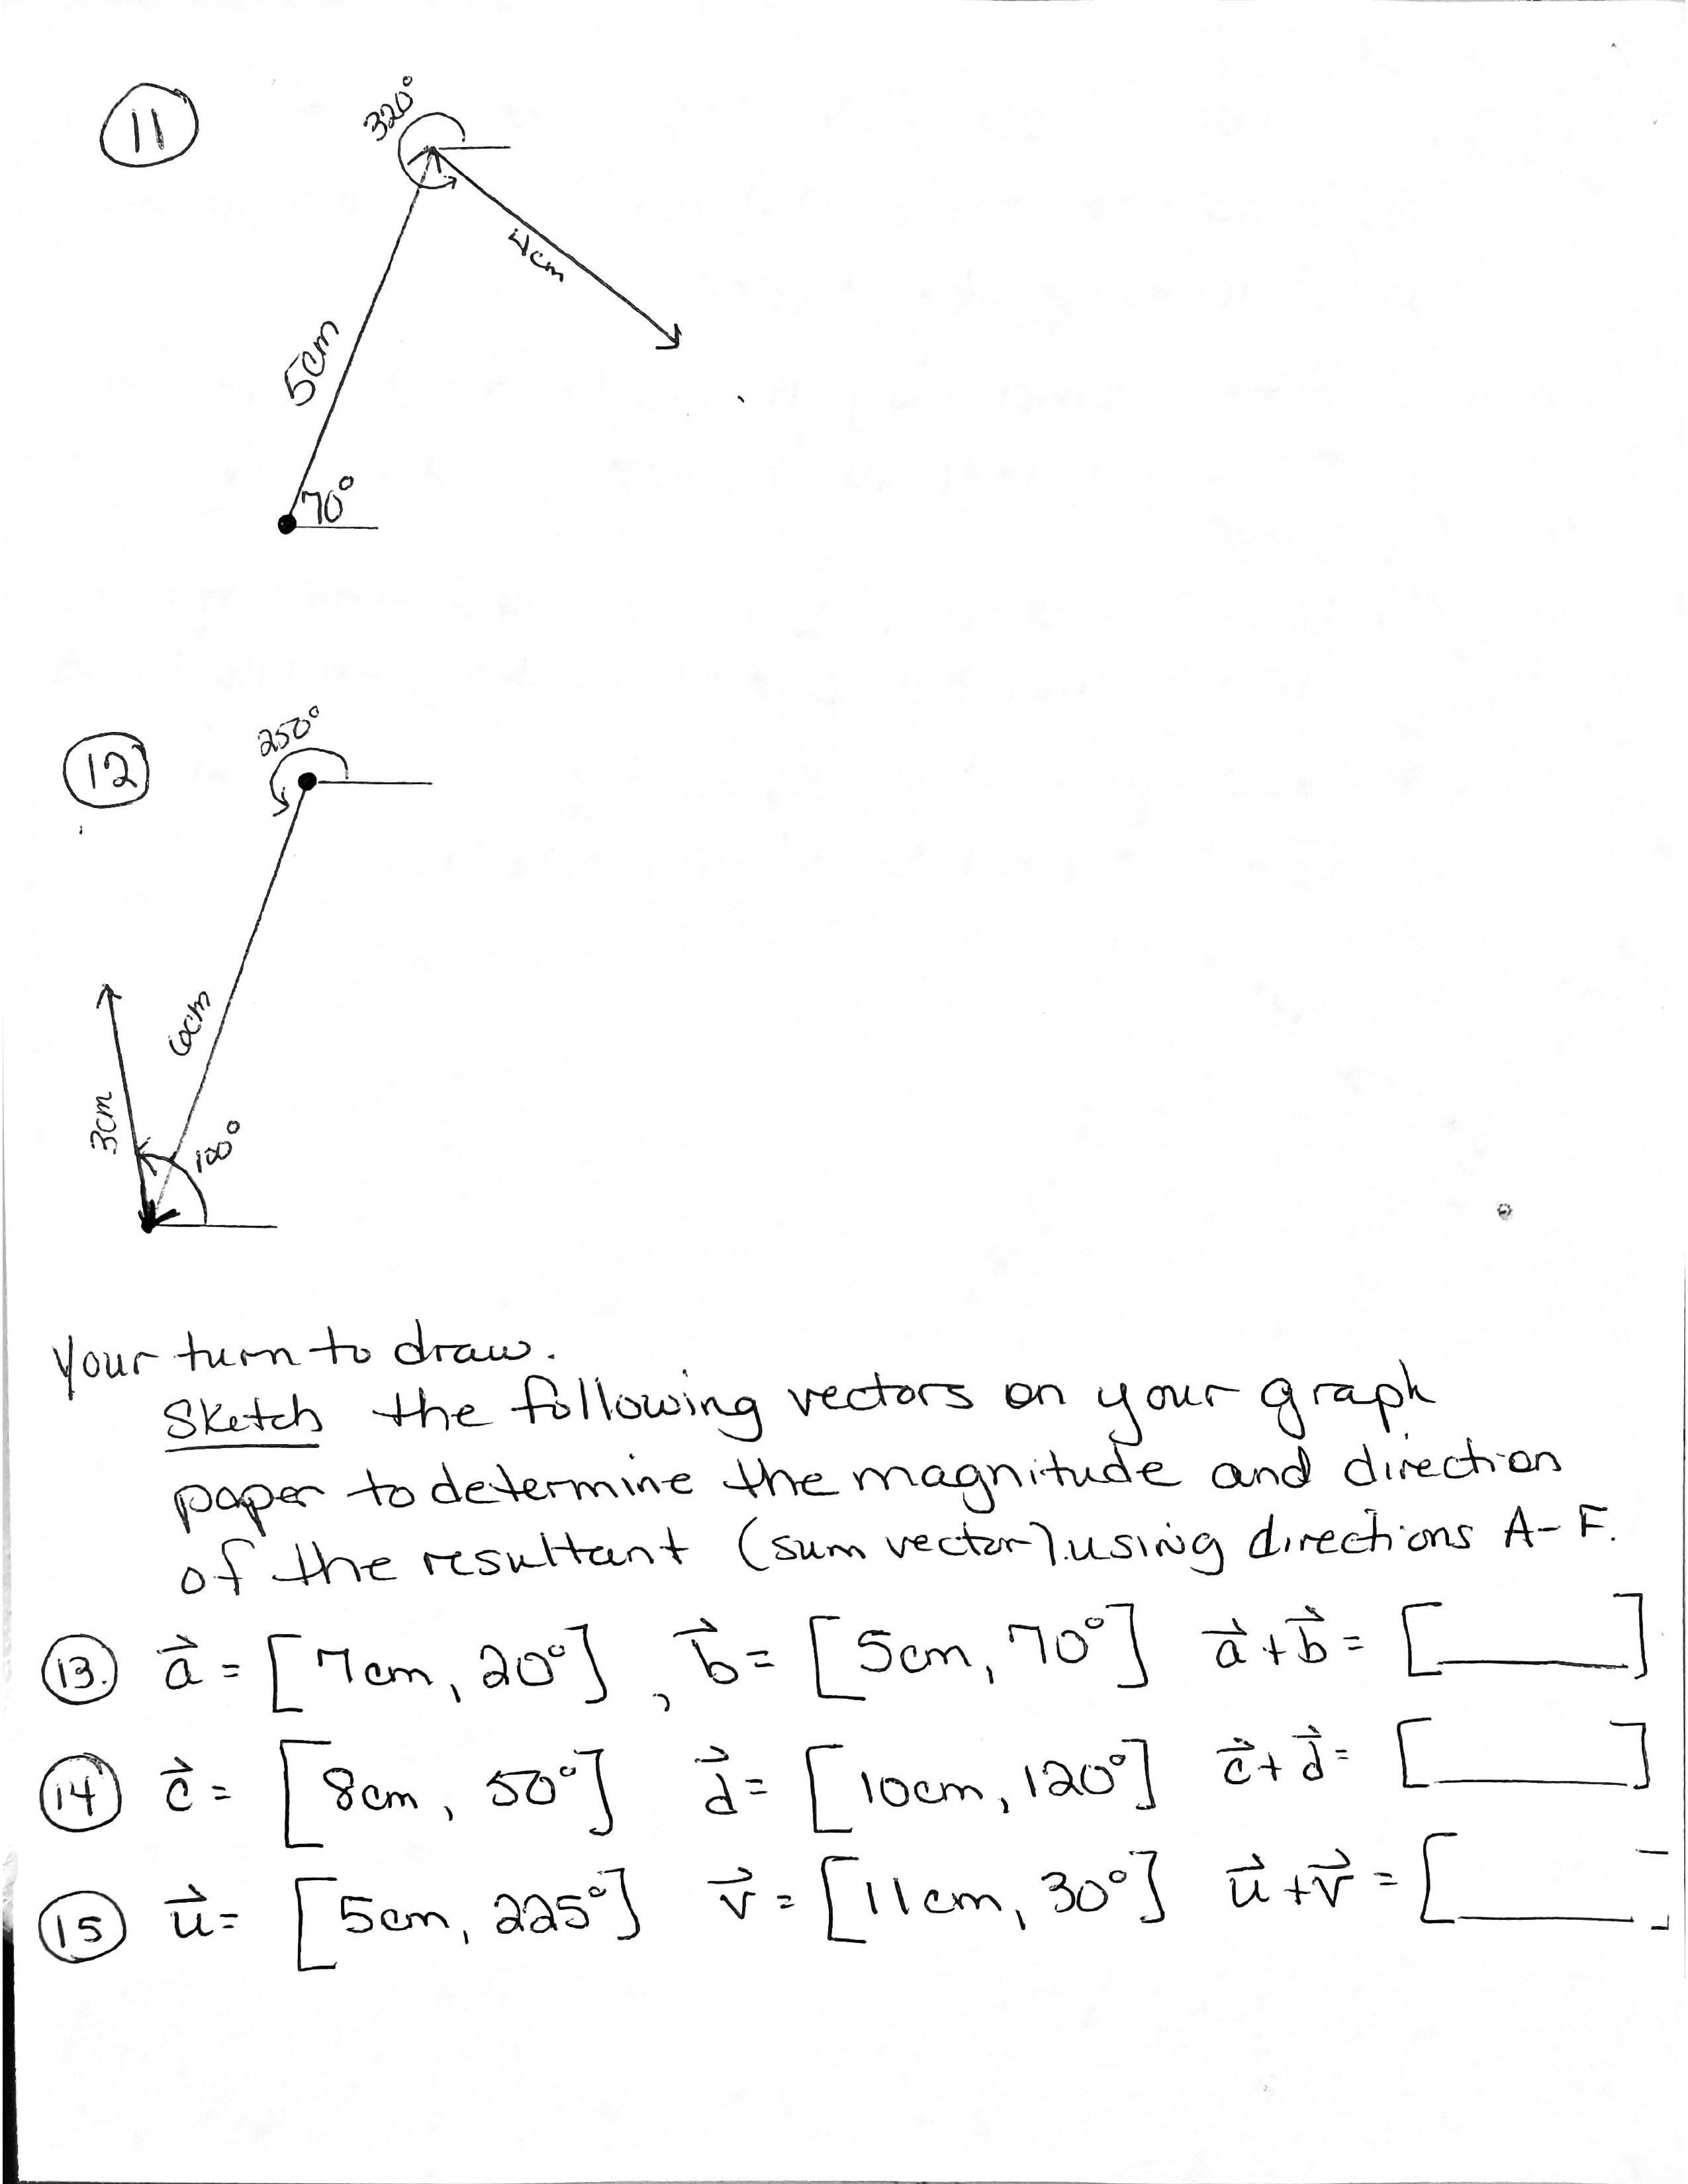 11
320°
4cm
5cm
70°
12
250°
6cm
3cm
100°
Your turn to draw.
Sketch the following vectors on your graph
paper to determine the magnitude and direction
of the resultant (sum vector). using directions A-F.
13. a⃗ = [7cm, 20°], b⃗ = [5cm, 70°] a⃗ + b⃗ = [____]
14 c⃗ = [8cm, 50°] d⃗ = [10cm, 120°] c⃗ + d⃗ = [____]
15 u⃗ = [5cm, 225°] v⃗ = [11cm, 30°] u⃗ + v⃗ = [____]